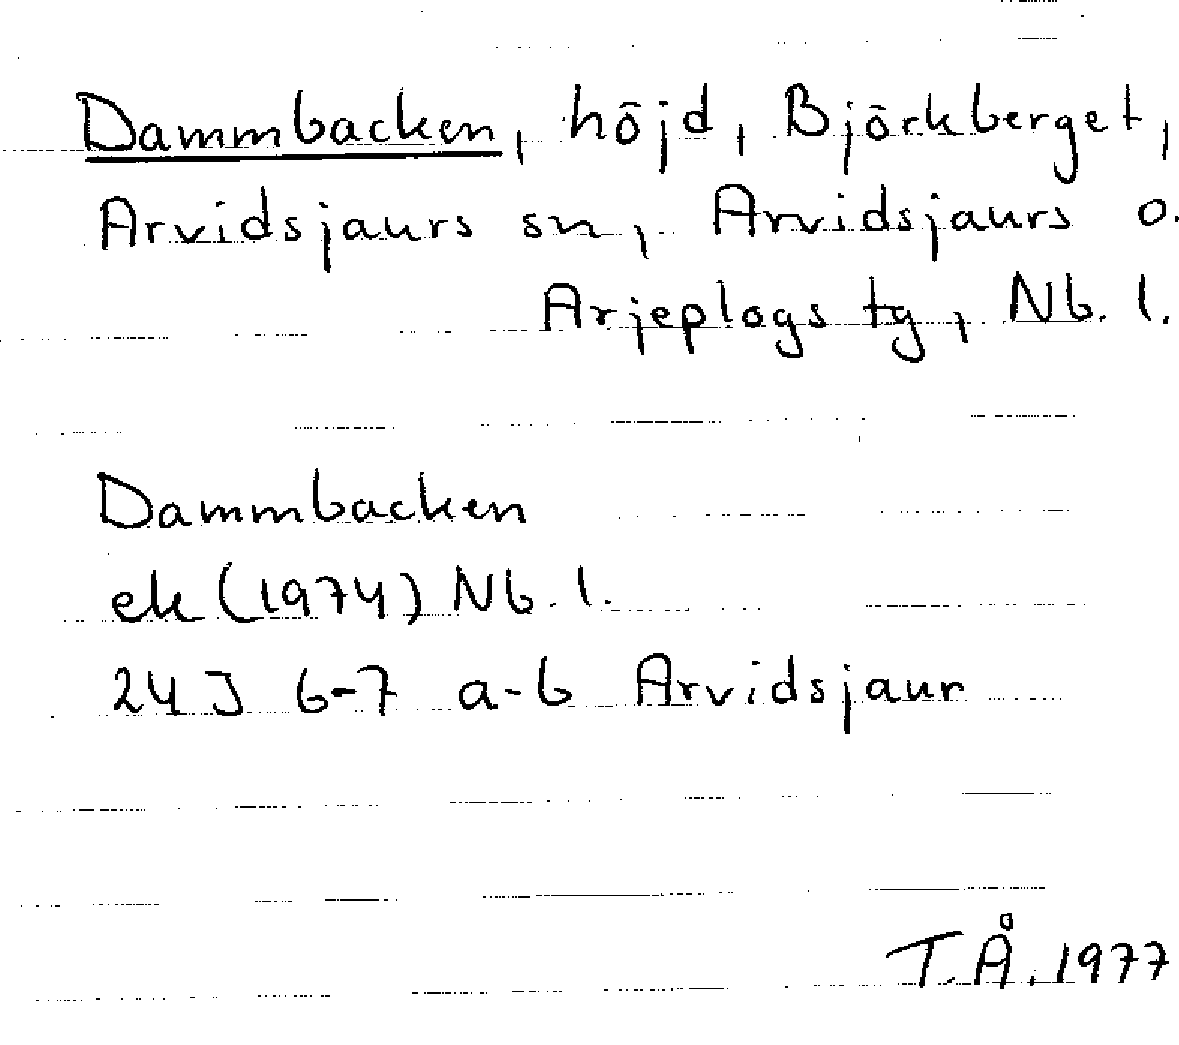 Dammbacken, höjd, Björkberget,
Arvidsjaurs sn, Arvidsjaurs o.
Arjeplogs tg, Nb. l.
Dammbacken
ek (1974) Nb. l.
24 J 6-7 a-b Arvidsjaur
T.Å. 1977